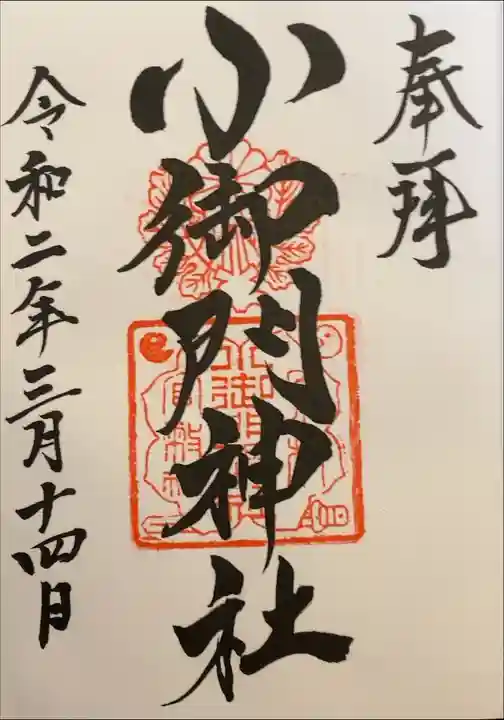 奉拝
小御門神社
令和二年三月十四日